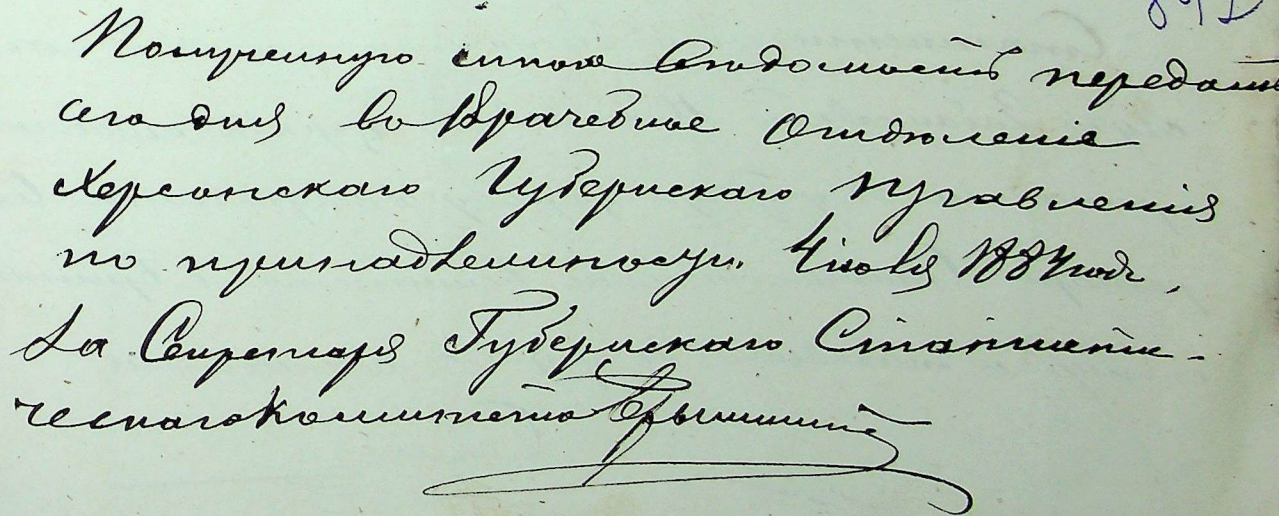 Полученную мною вѣдомость передать
сего дня во Врачебное Отдѣленіе
Херсонскаго Губернскаго Правленія
по принадлежности. 4 іюля 1884 года,
За Секретаря Губернскаго Статисти-
ческаго Комитета